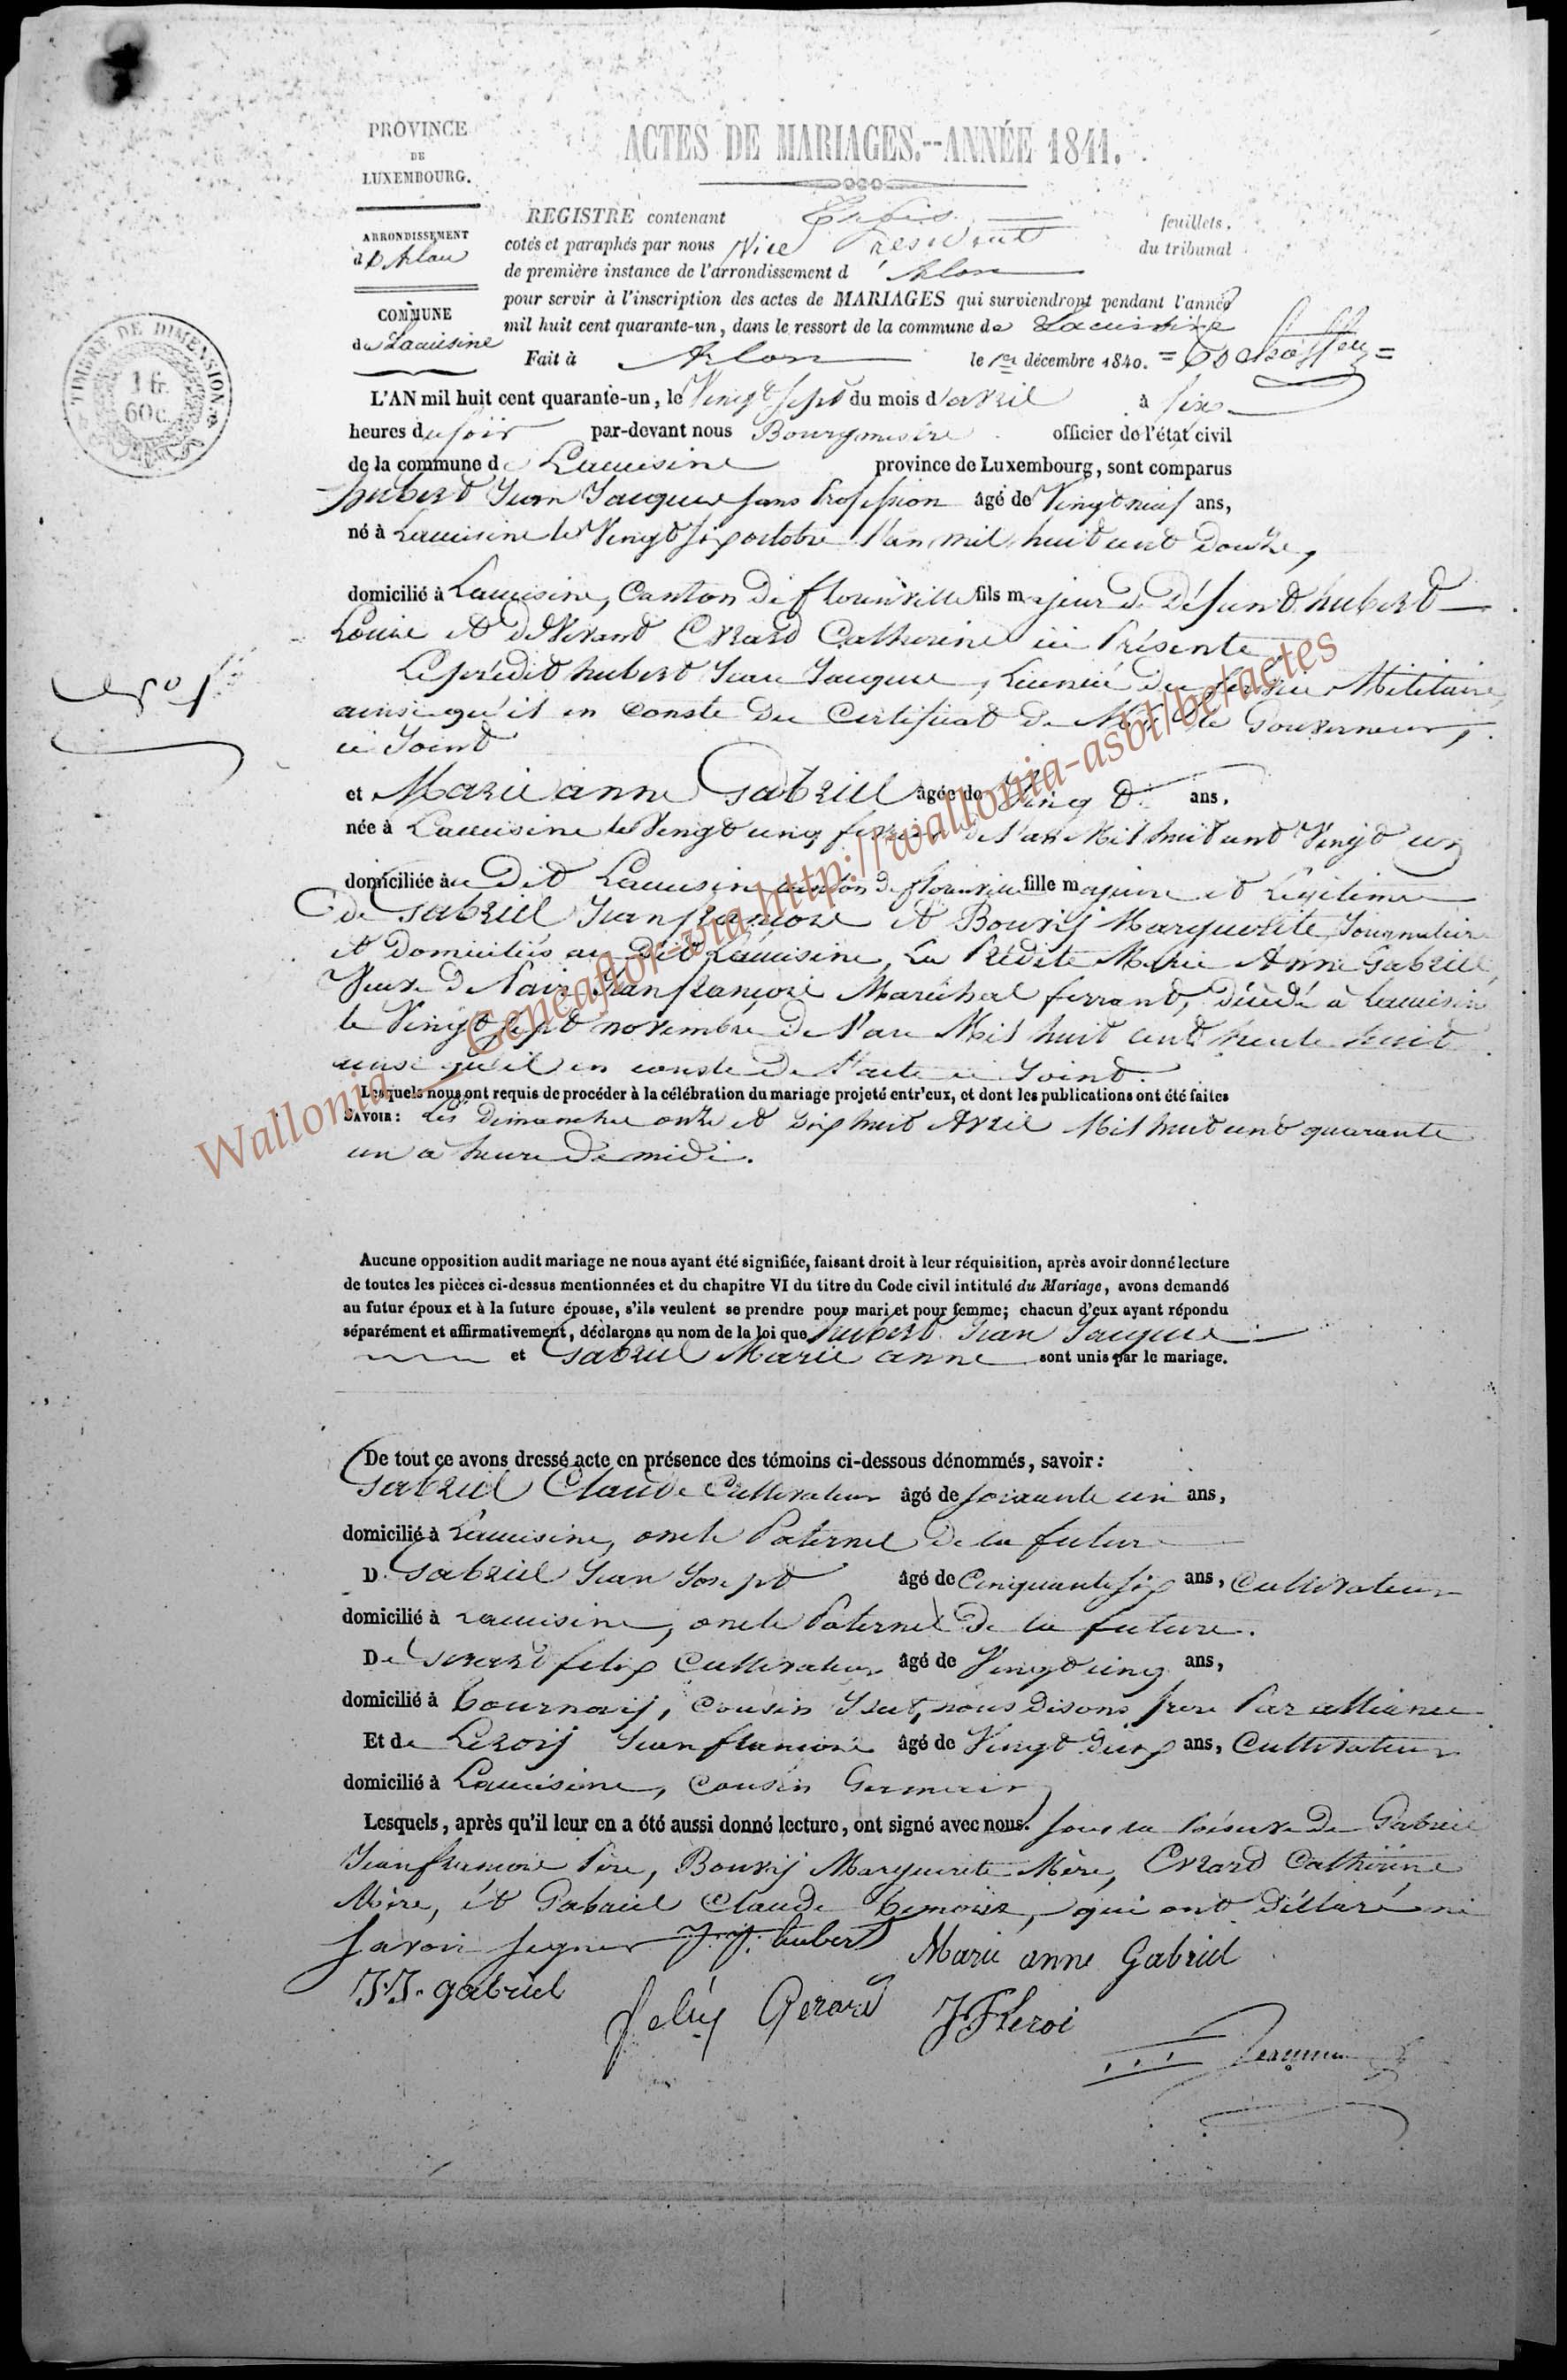 PROVINCE
DE
LUXEMBOURG.
ARRONDISSEMENT
d'Arlon
COMMUNE
de Lacuisine
TIMBRE DE DIMENSION
1 fr.
60 c.
ACTES DE MARIAGES.--ANNÉE 1841.
REGISTRE contenant Trois feuillets,
cotés et paraphés par nous Vice Président du tribunal
de première instance de l'arrondissement d'Arlon
pour servir à l'inscription des actes de MARIAGES qui surviendront pendant l'année
mil huit cent quarante-un, dans le ressort de la commune de Lacuisine
Fait à Arlon le 1er décembre 1840.
N° 1
L'AN mil huit cent quarante-un, le Vingt Sept du mois d'avril à six
heures du soir par-devant nous Bourgmestre officier de l'état civil
de la commune de Lacuisine province de Luxembourg, sont comparus
hubert Jean Jacque sans Profession âgé de Vingt neuf ans,
né à Lacuisine le Vingt six octobre l'an mil huit cent douze,
domicilié à Lacuisine, Canton de florenville fils majeur de Défunt hubert
Louis et de Vivant Evrard Catherine ici Présente
Le prédit hubert Jean Jacque, Licencié du service Militaire,
ainsi qu'il en conste du Certificat de Mr le Gouverneur,
ci Joint
et Marie anne Gabriel âgée de Vingt ans,
née à Lacuisine le Vingt cinq fevrier de l'an Mil huit cent Vingt un
domiciliée au Dit Lacuisine canton de florenville fille majeure et Légitime
de Gabriel Jean françois et Bouvij Marguerite Journalier
et domiciliés au Dit Lacuisine, La Prédite Marie Anne Gabriel
Veuve de Noir Jean françois Maréchal ferrant, décédé à Lacuisine
le Vingt sept novembre de l'an Mil huit cent trente huit
ainsi qu'il en conste de l'acte ci Joint.
Lesquels nous ont requis de procéder à la célébration du mariage projeté entr'eux, et dont les publications ont été faites
SAVOIR: Les Dimanche onze et dix huit Avril Mil huit cent quarante
un a heure de midi.
Aucune opposition audit mariage ne nous ayant été signifiée, faisant droit à leur réquisition, après avoir donné lecture
de toutes les pièces ci-dessus mentionnées et du chapitre VI du titre du Code civil intitulé du Mariage, avons demandé
au futur époux et à la future épouse, s'ils veulent se prendre pour mari et pour femme; chacun d'eux ayant répondu
séparément et affirmativement, déclarons au nom de la loi que hubert Jean Jacque
et Gabriel Marie anne sont unis par le mariage.
De tout ce avons dressé acte en présence des témoins ci-dessous dénommés, savoir:
Gabriel Claude Cultivateur âgé de soixante un ans,
domicilié à Lacuisine, oncle Paternel de la future
D. Gabriel Jean Josept âgé de Cinquante six ans, Cultivateur
domicilié à Lacuisine, oncle Paternel de la future.
De Gerard felix Cultivateur âgé de Vingt cinq ans,
domicilié à tournay, cousin nous disons frere Par alliance
Et de Leroij Jean françois âgé de Vingt Deux ans, Cultivateur
domicilié à Lacuisine, Cousin Germain
Lesquels, après qu'il leur en a été aussi donné lecture, ont signé avec nous. sous la Réserve de Gabriel
Jean françois Père, Bouvij Marguerite Mère, Evrard Catherine
Mère, et Gabriel Claude temoin, qui ont Déclaré ne
savoir signer J. J. hubert Marie anne Gabriel
J. J. gabriel
felix Gerard J F Leroi
Wallonia _ Geneaflor via http://wallonia-asbl/be/actes